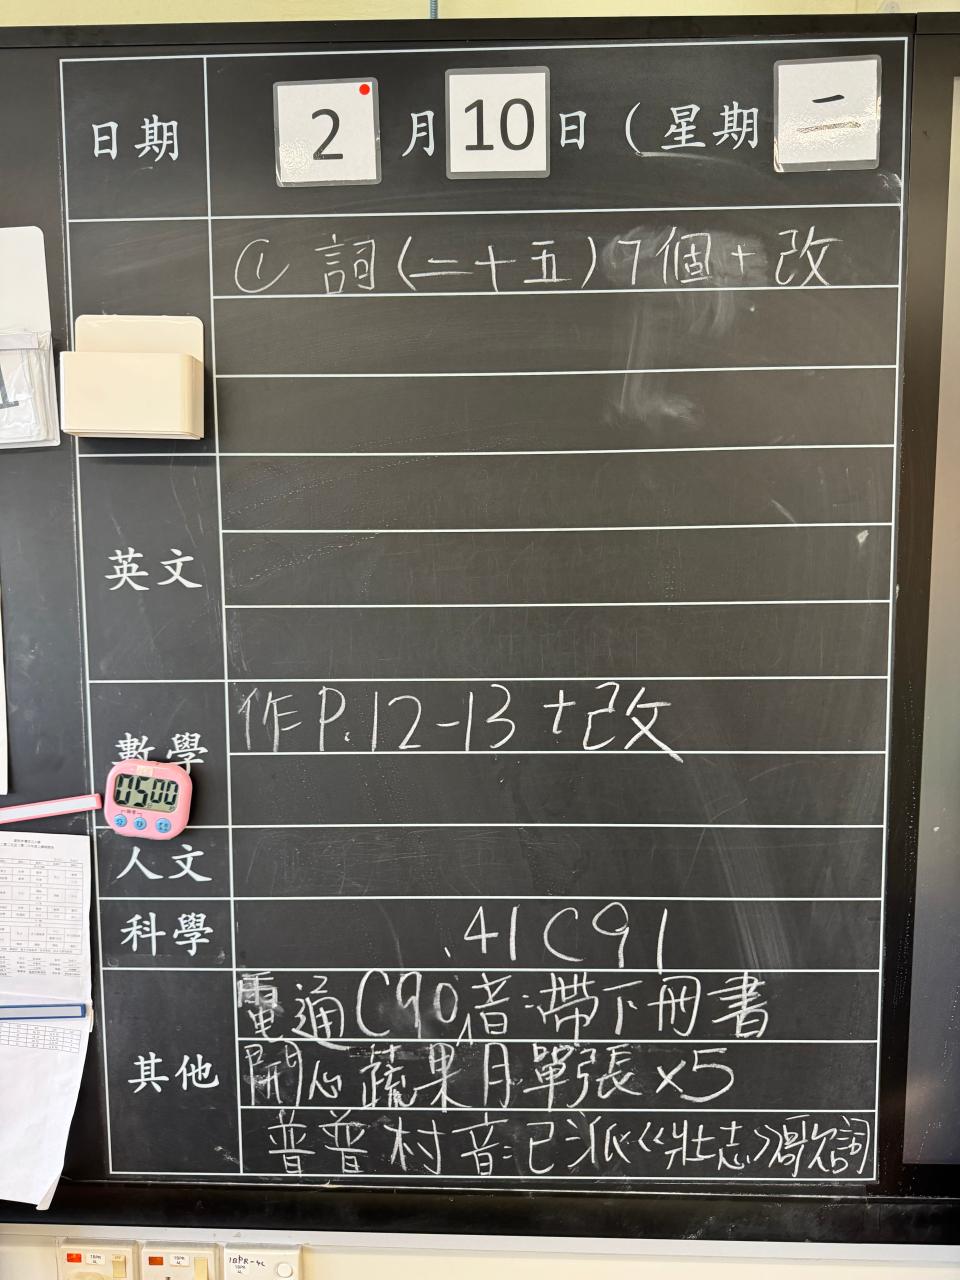 日期 2 月 10 日 ( 星期 二
① 詞(二十五)7個+改
英文
數學 作P.12-13 +改
05:00
人文
科學 .41 C91
其他 電通C90, 音:帶下冊書
開心蔬果月單張 x5
普普村 音:已派《壯志》歌詞
1BPR-4L